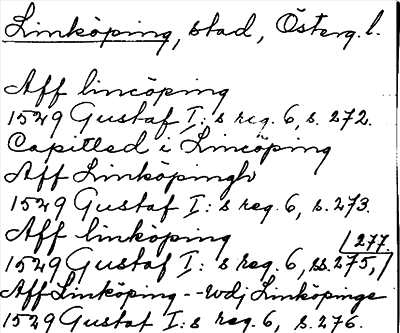 Linköping, stad, Österg. l.
Aff lincöping
1529 Gustaf I:s reg. 6, s. 272.
Capitled i Lincöping
Aff Linköpingh
1529 Gustaf I:s reg. 6, s. 273.
Aff linköping
1529 Gustaf I:s reg. 6, ss. 275, 277.
Aff Linköping--wdj Linköpinge
1529 Gustaf I:s reg. 6, s. 276.